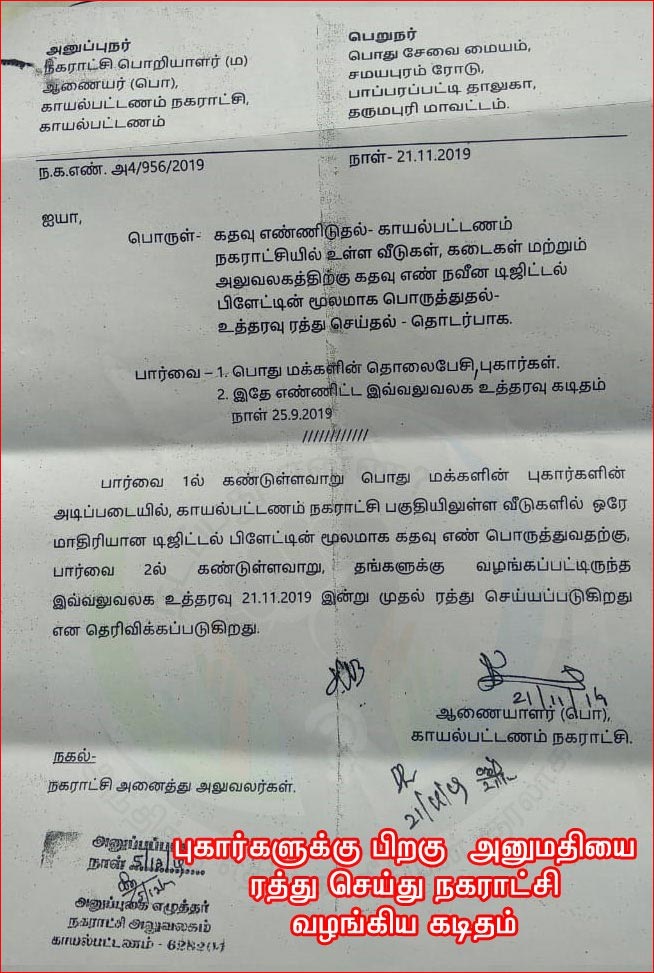 அனுப்புநர்
நகராட்சி பொறியாளர் (ம)
ஆணையர் (பொ),
காயல்பட்டணம் நகராட்சி,
காயல்பட்டணம்
பெறுநர்
பொது சேவை மையம்,
சமயபுரம் ரோடு,
பாப்பரப்பட்டி தாலுகா,
தருமபுரி மாவட்டம்.
ந.க.எண். அ4/956/2019
நாள்- 21.11.2019
ஐயா,
பொருள்- கதவு எண்ணிடுதல்- காயல்பட்டணம்
நகராட்சியில் உள்ள வீடுகள், கடைகள் மற்றும்
அலுவலகத்திற்கு கதவு எண் நவீன டிஜிட்டல்
பிளேட்டின் மூலமாக பொருத்துதல்-
உத்தரவு ரத்து செய்தல் - தொடர்பாக.
பார்வை – 1. பொது மக்களின் தொலைபேசி,புகார்கள்.
2. இதே எண்ணிட்ட இவ்வலுவலக உத்தரவு கடிதம்
நாள் 25.9.2019
////////////
பார்வை 1ல் கண்டுள்ளவாறு பொது மக்களின் புகார்களின்
அடிப்படையில், காயல்பட்டணம் நகராட்சி பகுதியிலுள்ள வீடுகளில் ஒரே
மாதிரியான டிஜிட்டல் பிளேட்டின் மூலமாக கதவு எண் பொருத்துவதற்கு,
பார்வை 2ல் கண்டுள்ளவாறு, தங்களுக்கு வழங்கப்பட்டிருந்த
இவ்வலுவலக உத்தரவு 21.11.2019 இன்று முதல் ரத்து செய்யப்படுகிறது
என தெரிவிக்கப்படுகிறது.
21/11/19
ஆணையாளர் (பொ),
காயல்பட்டணம் நகராட்சி.
நகல்-
நகராட்சி அனைத்து அலுவலர்கள்.
21/11/19
நாள்
அனுப்புகை எழுத்தர்
நகராட்சி அலுவலகம்
காயல்பட்டணம் - 628204
புகார்களுக்கு பிறகு அனுமதியை
ரத்து செய்து நகராட்சி
வழங்கிய கடிதம்